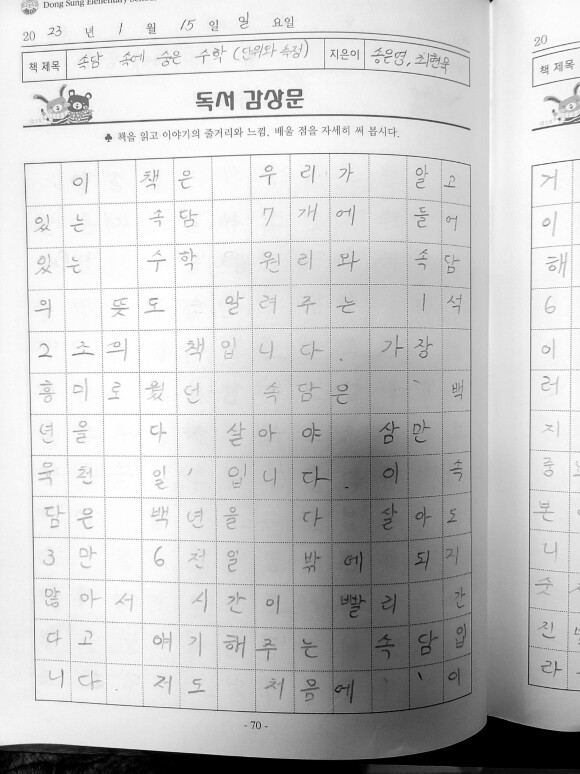 Dong Sung Elementary
20 23 년 1 월 15 일 일 요일
책 제목 속담 속에 숨은 수학 (단위와 측정) 지은이 송은영, 최현욱
독서 감상문
♣ 책을 읽고 이야기의 줄거리와 느낌, 배울 점을 자세히 써 봅시다.
이 책은 우리가 알고
있는 속담 7개에 들어
있는 수학 원리와 속담
의 뜻도 알려주는 1석
2조의 책입니다. 가장
흥미로웠던 속담은 '백
년을 다 살아야 삼만
육천 일' 입니다. 이 속
담은 백년을 다 살아도
3만 6천일 밖에 되지
않아서 시간이 빨리 간
다고 얘기해주는 속담입
니다. 저도 처음에 '이
- 70 -
20
책 제목
거
이
해
6
이
러
지
중
본
니
숫
진
라